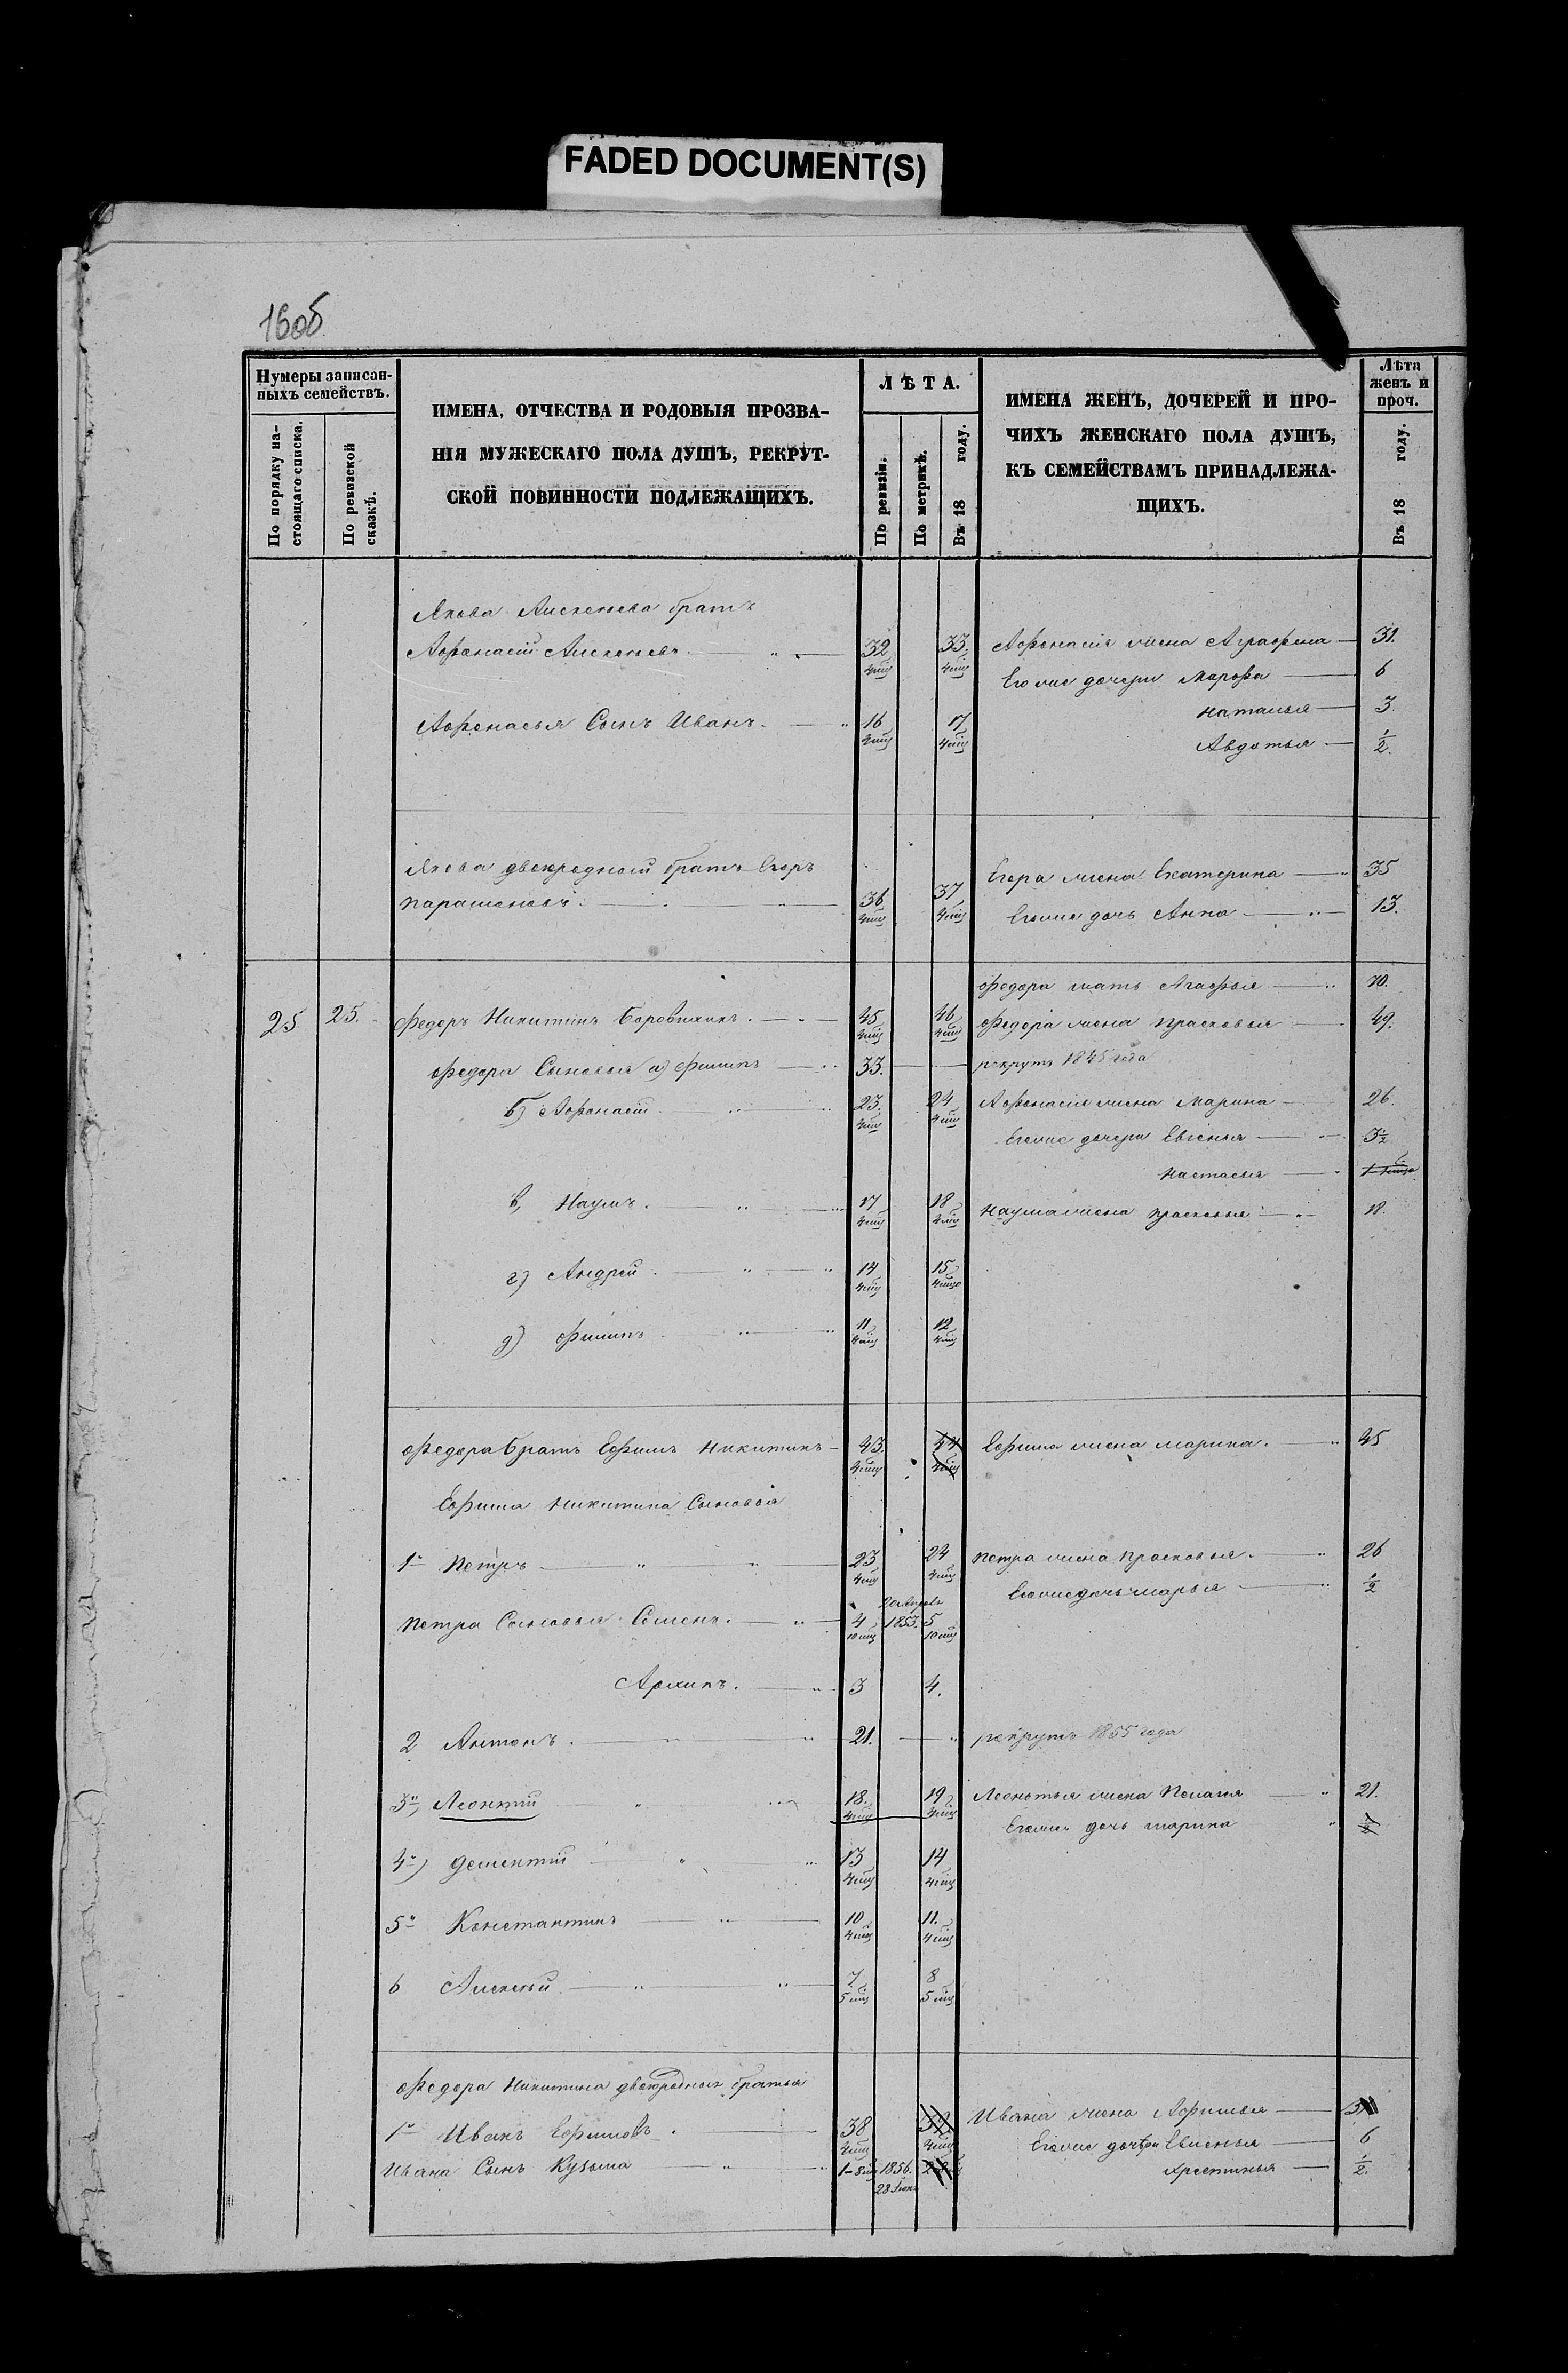 FADED DOCUMENT(S)
16об
Нумеры записан-
ныхъ семействъ.
По порядку на-
стоящаго списка.
По ревизской
сказкѣ.
ИМЕНА, ОТЧЕСТВА И РОДОВЫЯ ПРОЗВА-
НІЯ МУЖЕСКАГО ПОЛА ДУШЪ, РЕКРУТ-
СКОЙ ПОВИННОСТИ ПОДЛЕЖАЩИХЪ.
ЛѢТА.
По ревизіи.
По метрикѣ.
Въ 18 году.
ИМЕНА ЖЕНЪ, ДОЧЕРЕЙ И ПРО-
ЧИХЪ ЖЕНСКАГО ПОЛА ДУШЪ,
КЪ СЕМЕЙСТВАМЪ ПРИНАДЛЕЖА-
ЩИХЪ.
Лѣта
женъ и
проч.
Въ 18 году.
Якова Алексеева братъ
Афонасій Алексеевъ 32 33 Афонасія жена Аграфена 31.
Егоже дочери Марфа 6
Наталья 3.
Афонасья Сынъ Иванъ. 16 17
Авдотья 1/2.
Якова двоюродной братъ Егоръ
36 37 Егора жена Екатерина 35
Егоже дочь Анна 13.
Федора мать Агафья 70.
25 25. Федоръ Никитинъ 45 46 Федора жена Прасковья 49.
Федора Сыновья а) Филипъ 33. рекрутъ 1845 года
б) Афонасій 23. 24 Афонасія жена Марина 26.
Егоже дочери Евгенья 3 1/2
Настасья
в, Наумъ. 17 18 Наума жена Прасковья 18.
г) Андрей 14 15
д) Филипъ 11 12
Федора братъ Ефимъ Никитинъ 43. 44 Ефима жена Марина. 45
Ефима Никитина Сыновья
1й Петръ 23 24 Петра жена Прасковья. 26
Егоже дочь Марья 1/2
Петра Сыновья Семенъ. 4 1853. 5
Архипъ. 3 4.
2 Антонъ. 21. рекрутъ 1855 года
3й, Леонтій 18. 19 Леонтья жена Пелагея 21.
Егоже дочь Марина
4й) Дементій 13 14
5й Константинъ 10 11.
6 Алексей 7 8
Федора Никитина двоюродныи братья
1й Иванъ Ефимовъ 38 39 Ивана жена Афимья
Егоже дочери Евгенья 6
Ивана Сынъ Кузьма 1-8 1856. Христинья 1/2.